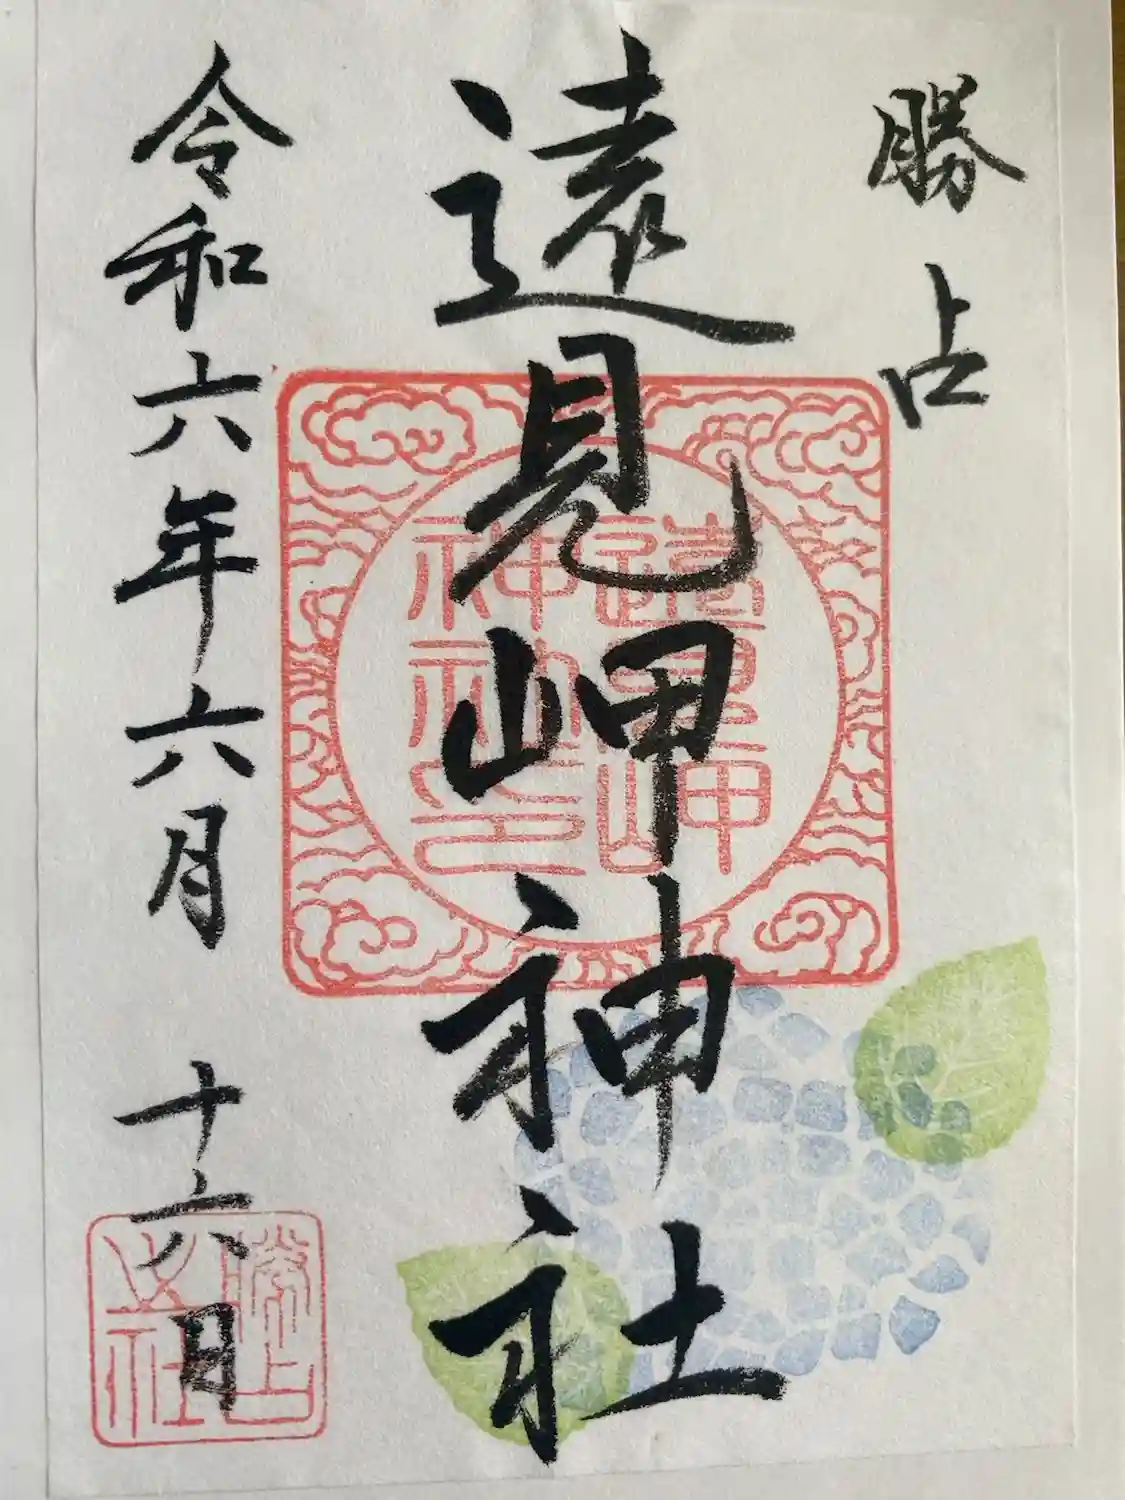 勝占
遠見岬神社
令和六年六月十六日
遠見岬
神社印
勝占
之社